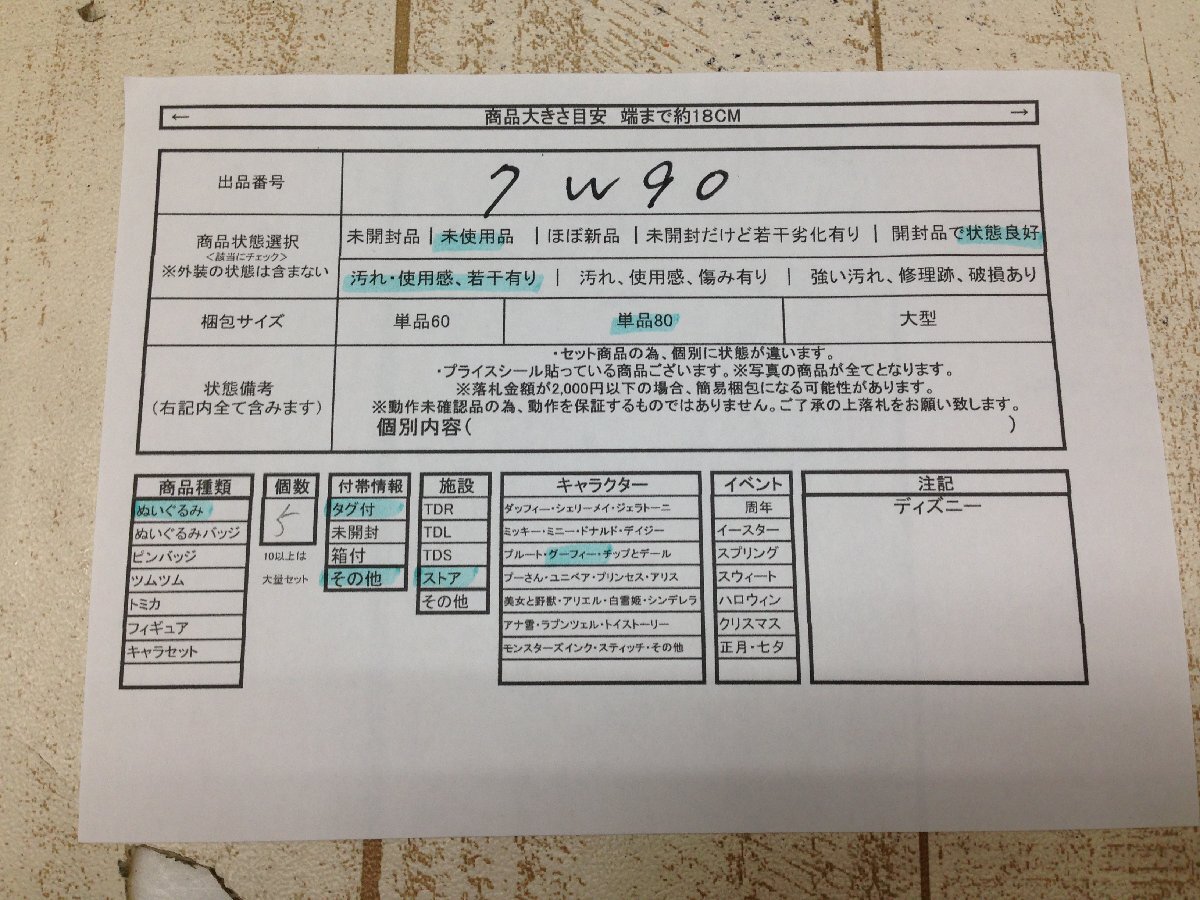 ← 商品大きさ目安 端まで約18CM →
出品番号 7W90
商品状態選択
<該当にチェック>
※外装の状態は含まない
未開封品 | 未使用品 | ほぼ新品 | 未開封だけど若干劣化有り | 開封品で状態良好
汚れ・使用感、若干有り | 汚れ、使用感、傷み有り | 強い汚れ、修理跡、破損あり
梱包サイズ 単品60 単品80 大型
状態備考
(右記内全て含みます)
・セット商品の為、個別に状態が違います。
・プライスシール貼っている商品ございます。※写真の商品が全てとなります。
※落札金額が2,000円以下の場合、簡易梱包になる可能性があります。
※動作未確認品の為、動作を保証するものではありません。ご了承の上落札をお願い致します。
個別内容( )
商品種類
ぬいぐるみ
ぬいぐるみバッジ
ピンバッジ
ツムツム
トミカ
フィギュア
キャラセット
個数
5
10以上は
大量セット
付帯情報
タグ付
未開封
箱付
その他
施設
TDR
TDL
TDS
ストア
その他
キャラクター
ダッフィー・シェリーメイ・ジェラトーニ
ミッキー・ミニー・ドナルド・デイジー
プルート・グーフィー・チップとデール
プーさん・ユニベア・プリンセス・アリス
美女と野獣・アリエル・白雪姫・シンデレラ
アナ雪・ラプンツェル・トイストーリー
モンスターズインク・スティッチ・その他
イベント
周年
イースター
スプリング
スウィート
ハロウィン
クリスマス
正月・七夕
注記
ディズニー